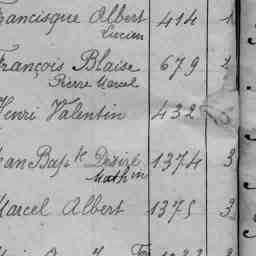 Francisque Albert 414 1
Lucien
François Blaise 679 2
Pierre Marcel
Henri Valentin 432
Jean Bapte Désiré 1374 3
Mathin
Marcel Albert 1375 3